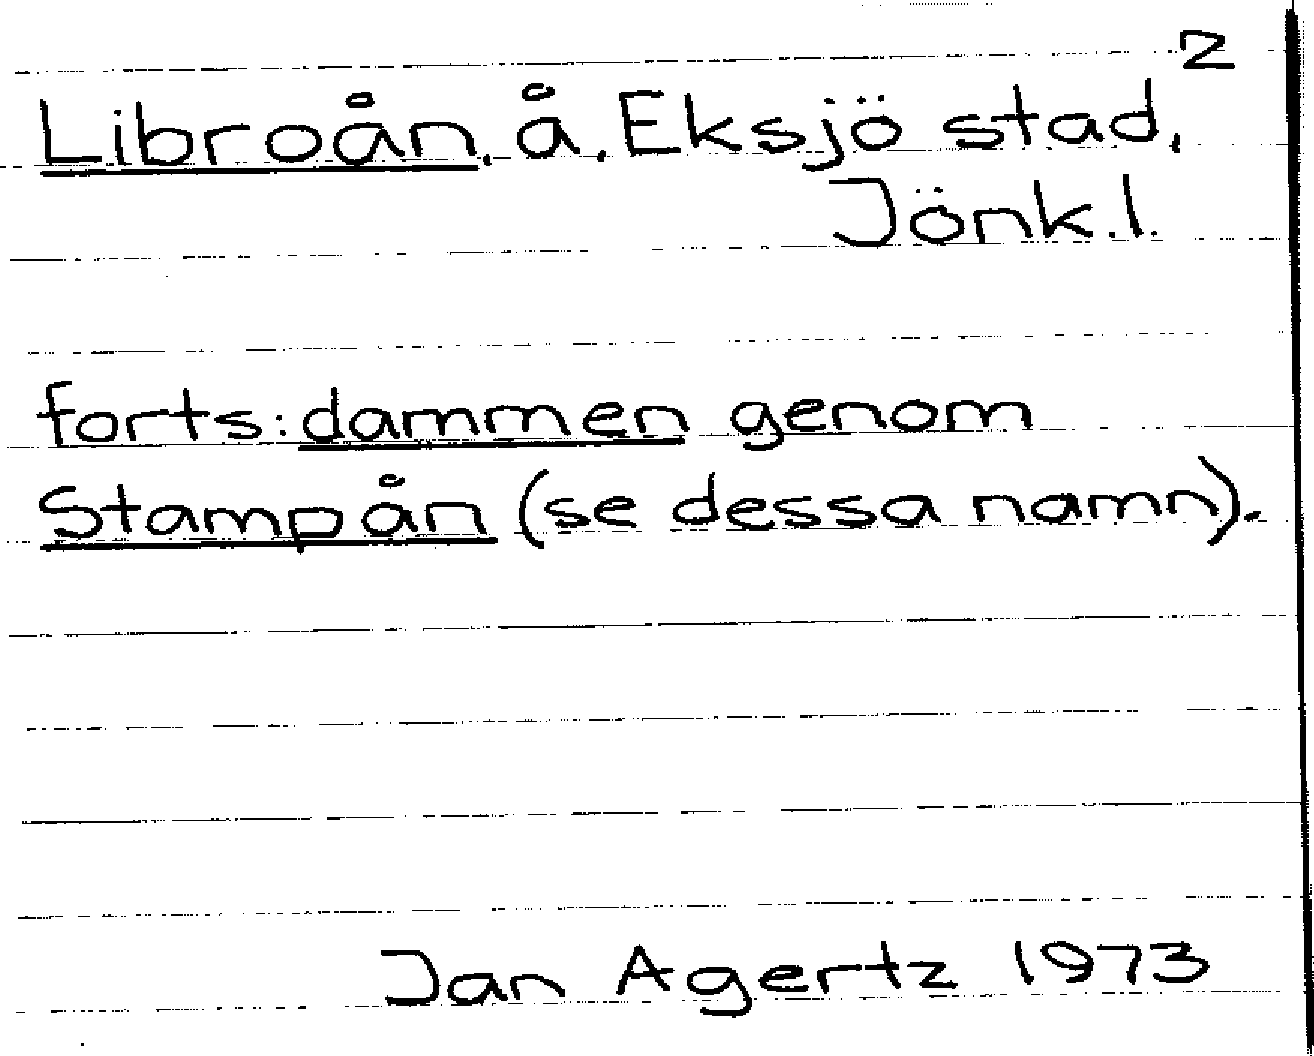 2
Libroån, å, Eksjö stad,
Jönk.l.
forts: dammen genom
Stampån (se dessa namn).
Jan Agertz 1973